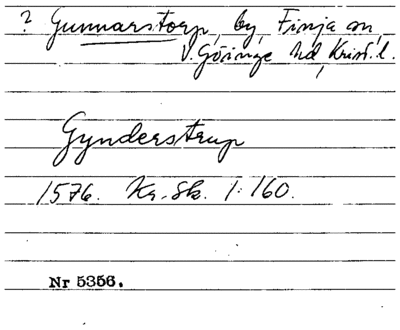 ? Gunnarstorp, by, Finja sn,
V. Göinge hd, Krist. l.
Gynderstrup
1576. Kr. Sk. 1:160.
Nr 5356.